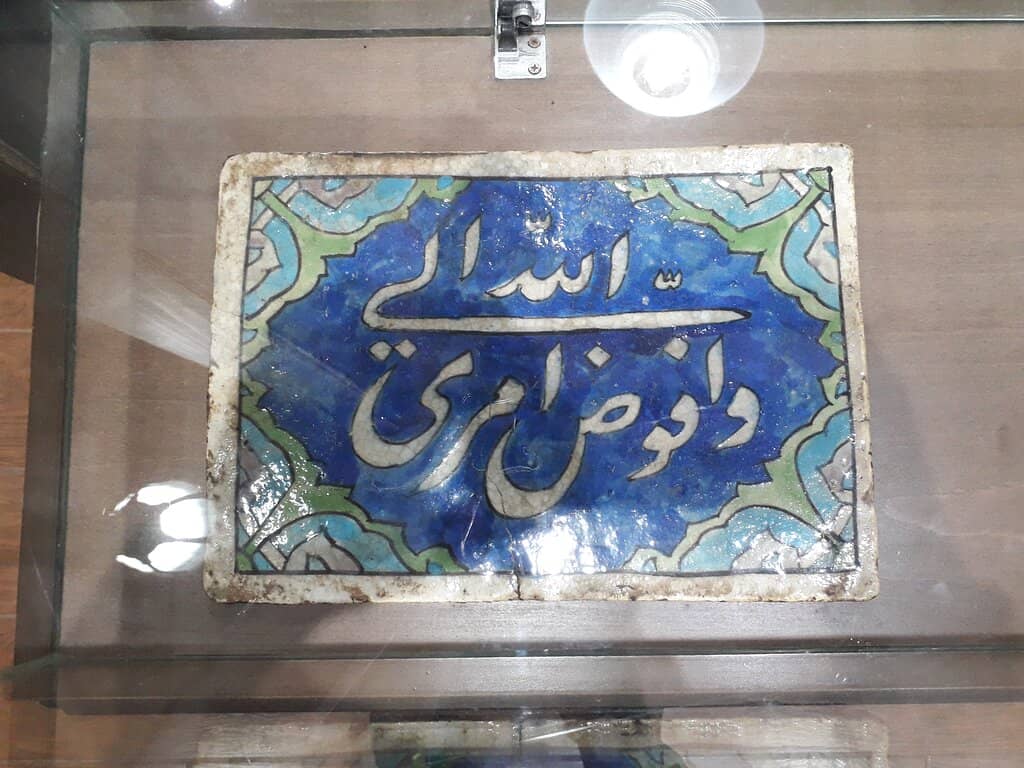 وافوض امري
الي الله